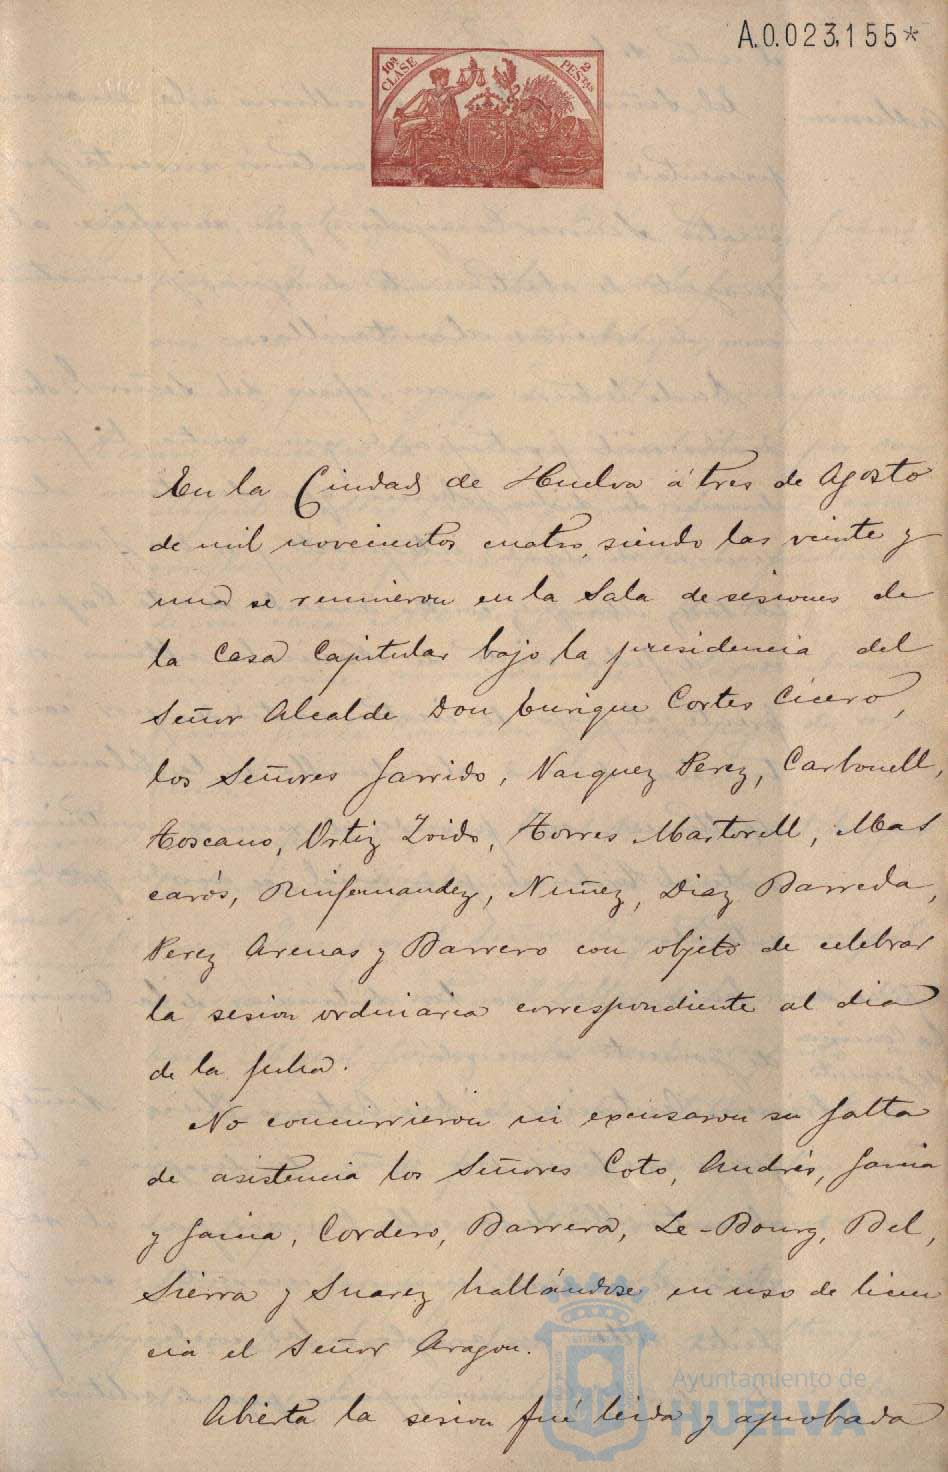 A.0.023,155*
10ª CLASE
2 PESTAS
En la Ciudad de Huelva á tres de Agosto
de mil novecientos cuatro, siendo las veinte y
una se reunieron en la Sala de sesiones de
la Casa Capitular bajo la presidencia del
Señor Alcalde Don Enrique Cortes Cícero,
los Señores Garrido, Vazquez Perez, Carbonell,
Toscano, Ortiz Zoido, Torres Martorell, Mas
carós, Ruifernandez, Nuñez, Diaz Barreda,
Perez Arenas y Barrero con objeto de celebrar
la sesion ordinaria correspondiente al dia
de la fecha.
No concurrieron ni excusaron su falta
de asistencia los Señores Coto, Andrés, Garcia
y Garcia, Cordero, Barrera, Le-Bourg, Bel,
Sierra y Suarez hallándose en uso de licen
cia el Señor Aragon.
Ayuntamiento de
HUELVA
Abierta la sesion fué leida y aprobada